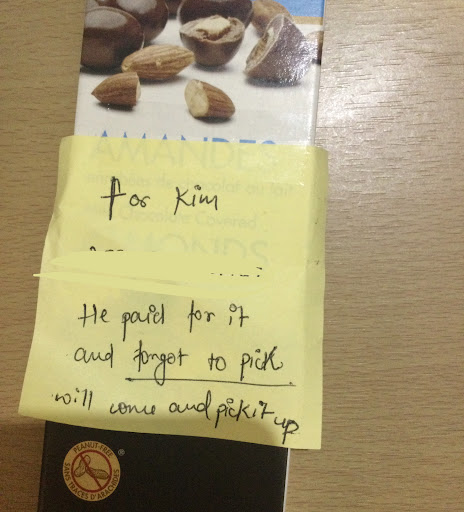 AMANDES
enrobées de chocolat au lait
For Kim
Chocolate Covered
ALMONDS
He paid for it
and forgot to pick.
will come and pick it up
PEANUT-FREE
SANS TRACES D'ARACHIDES
®